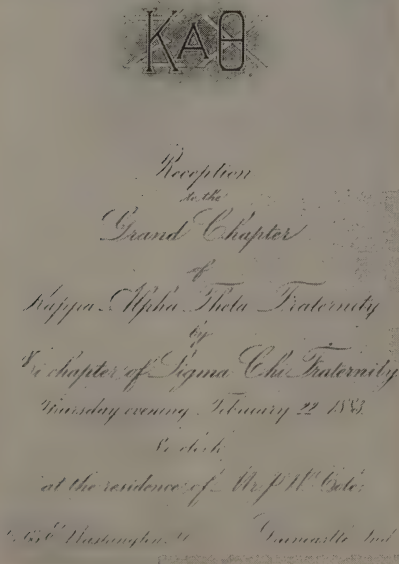 ΚΑΘ
Reception
to the
Grand Chapter
of
Kappa Alpha Theta Fraternity
by
Xi chapter of Sigma Chi Fraternity
Thursday evening February 22 1883
o'clock
at the residence of Mr.
Washington St Greencastle Ind